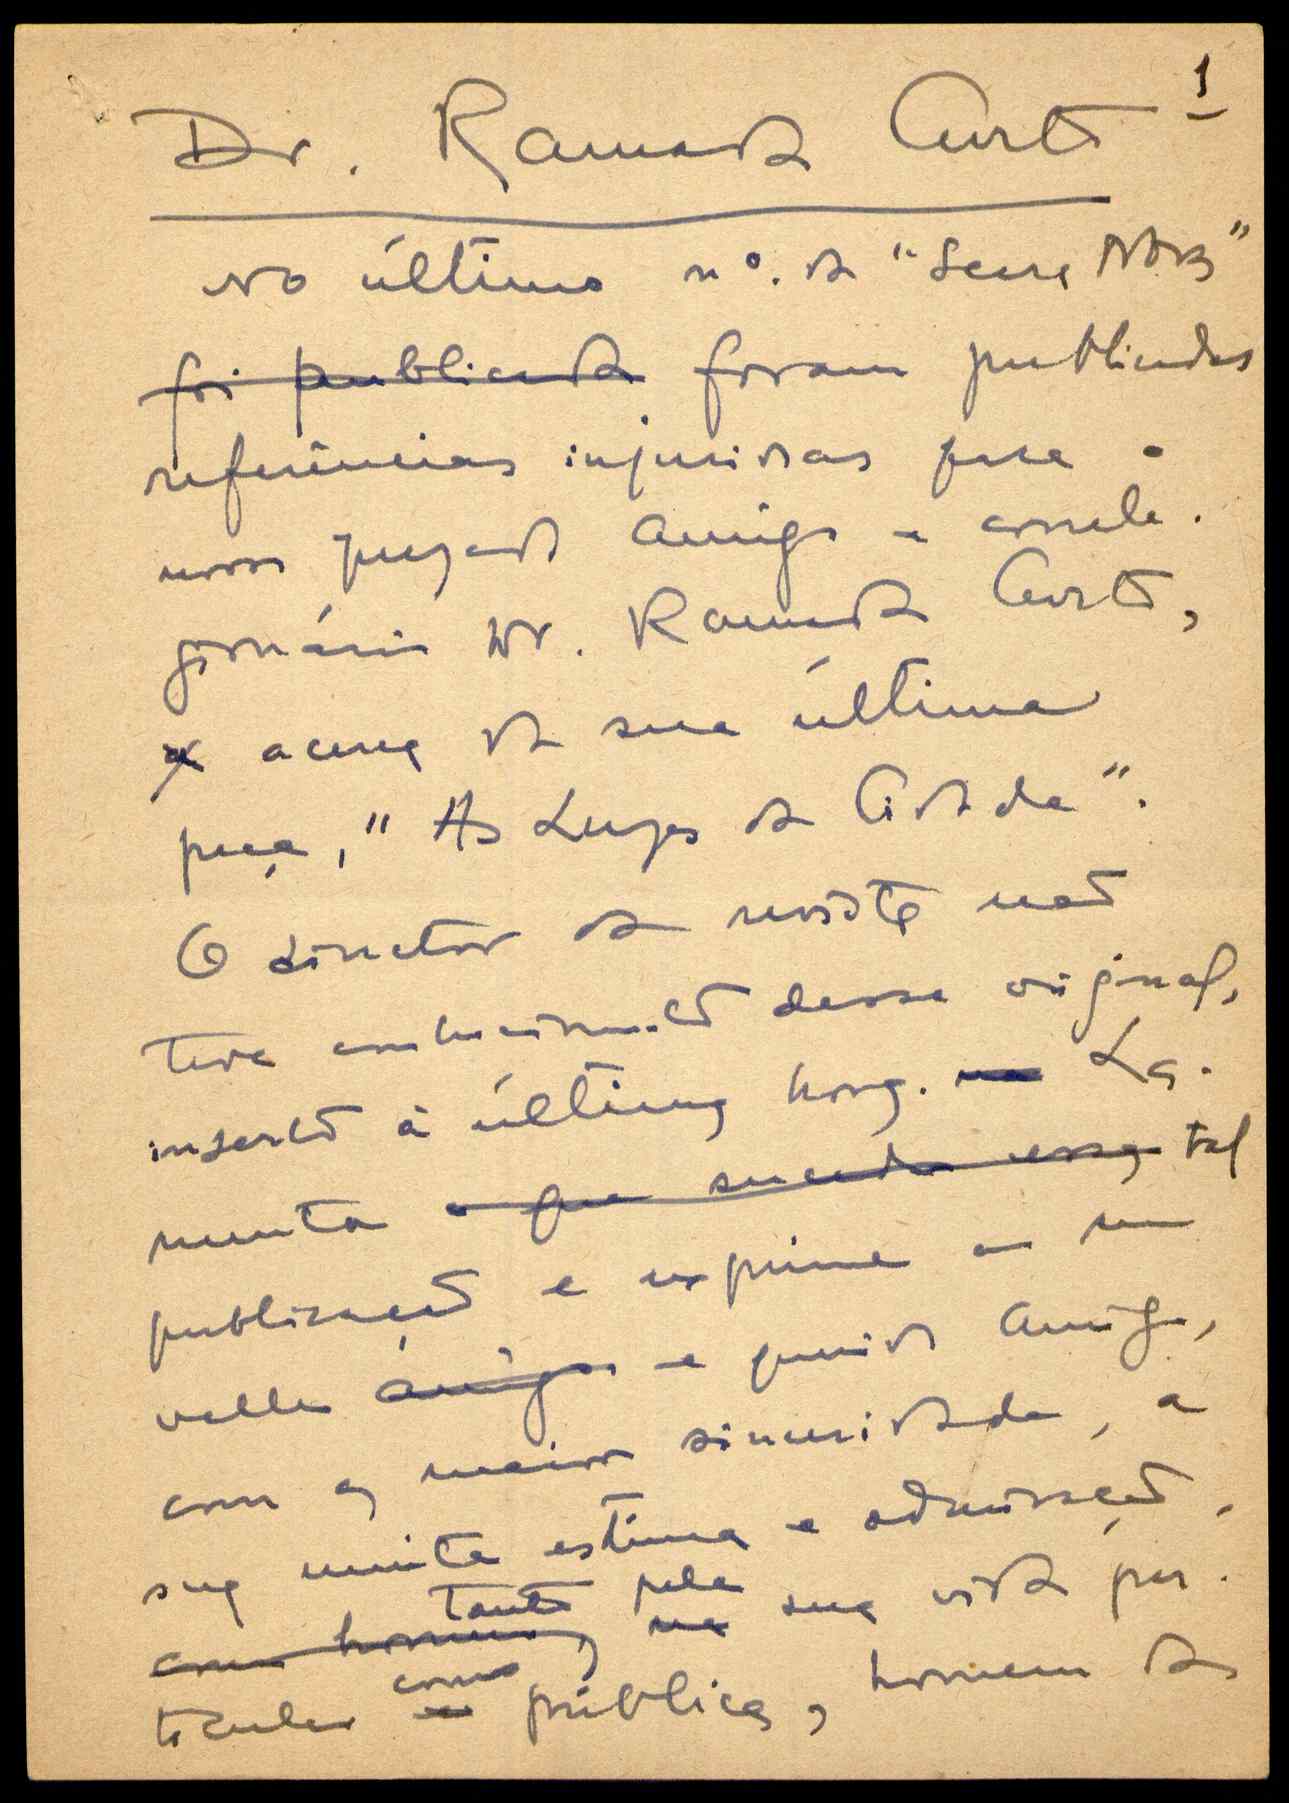 1
Dr. Ramada Curto
No último nº. da "Seara Nova"
foi publicada foram publicadas
referências injuriosas para o
nosso prezado amigo e correli-
gionário Dr. Ramada Curto,
a acerca da sua última
peça, "As Luzes da Cidade".
O director da revista não
teve conhecimento desse original,
inserto à última hora. La-
menta o que sucedeu essa tal
publicação e exprime ao seu
velho amigo e querido amigo,
com a maior sinceridade, a
sua muita estima e admiração,
tanto pela
como homem, na sua vida par-
como
ticular e pública, homem da